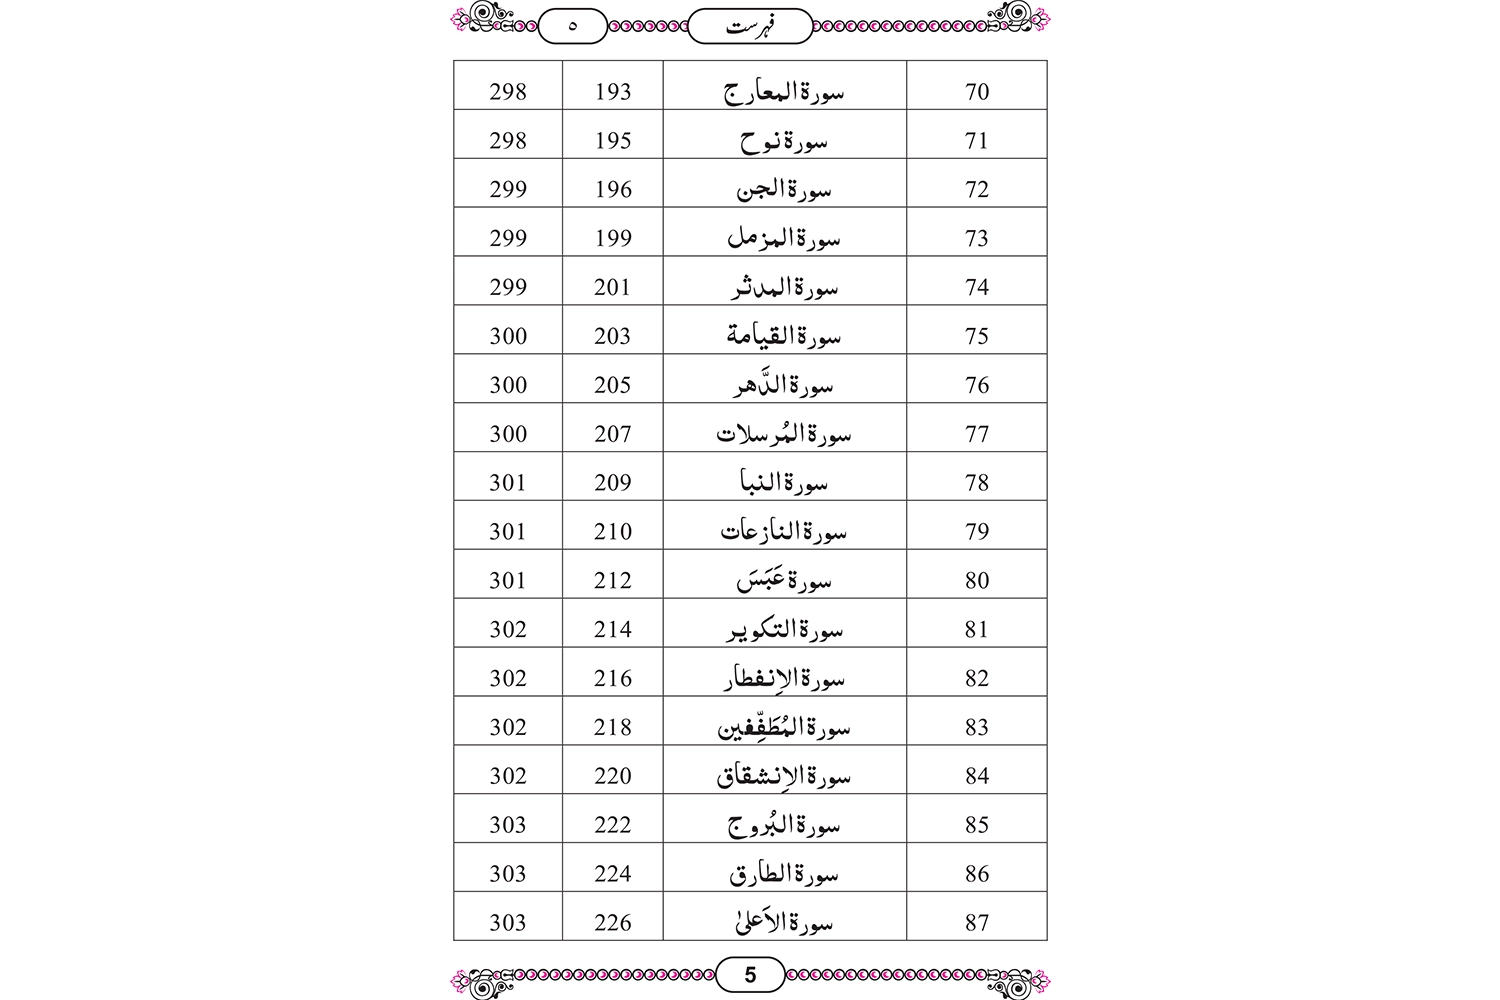 فہرست ۵
70 سورة المعارج 193 298
71 سورة نوح 195 298
72 سورة الجن 196 299
73 سورة المزمل 199 299
74 سورة المدثر 201 299
75 سورة القيامة 203 300
76 سورة الدَّهر 205 300
77 سورة المُرسلات 207 300
78 سورة النبا 209 301
79 سورة النازعات 210 301
80 سورة عَبَسَ 212 301
81 سورة التكوير 214 302
82 سورة الاِنفطار 216 302
83 سورة المُطَفِّفين 218 302
84 سورة الاِنشقاق 220 302
85 سورة البُروج 222 303
86 سورة الطارق 224 303
87 سورة الاَعلىٰ 226 303
5